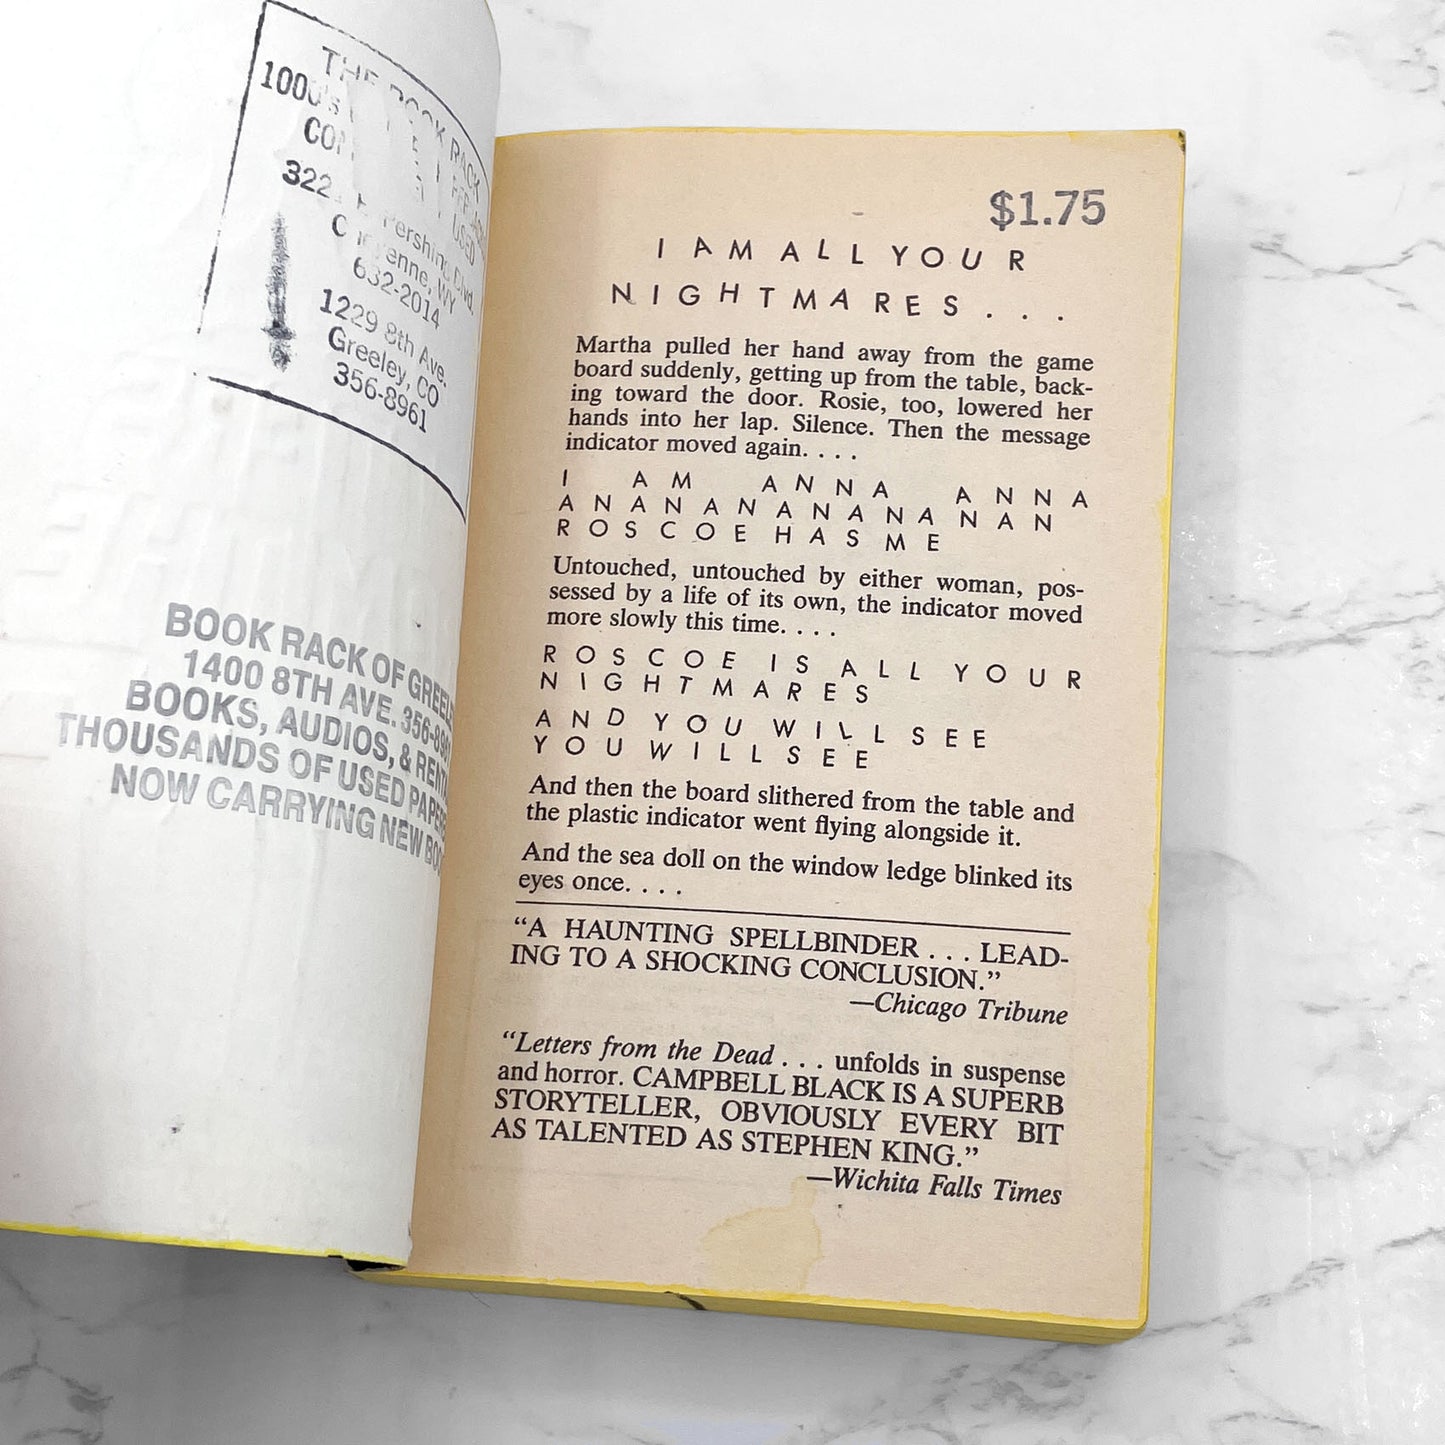 THE BOOK RACK
1000's
322 Pershing Blvd.
Cheyenne, WY
632-2014
1229 8th Ave.
Greeley, CO
356-8961
BOOK RACK OF
1400 8TH AVE.
BOOKS, AUDIOS, &
THOUSANDS OF USED
NOW CARRYING NEW
$1.75
I AM ALL YOUR
NIGHTMARES . . .
Martha pulled her hand away from the game
board suddenly, getting up from the table, back-
ing toward the door. Rosie, too, lowered her
hands into her lap. Silence. Then the message
indicator moved again. . . .
I AM ANNA ANNA
ANANANANANANAN
ROSCOE HAS ME
Untouched, untouched by either woman, pos-
sessed by a life of its own, the indicator moved
more slowly this time. . . .
ROSCOE IS ALL YOUR
NIGHTMARES
AND YOU WILL SEE
YOU WILL SEE
And then the board slithered from the table and
the plastic indicator went flying alongside it.
And the sea doll on the window ledge blinked its
eyes once. . . .
“A HAUNTING SPELLBINDER . . . LEAD-
ING TO A SHOCKING CONCLUSION.”
—Chicago Tribune
“Letters from the Dead . . . unfolds in suspense
and horror. CAMPBELL BLACK IS A SUPERB
STORYTELLER, OBVIOUSLY EVERY BIT
AS TALENTED AS STEPHEN KING.”
—Wichita Falls Times